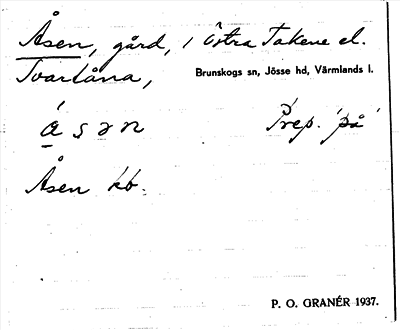 Åsen, gård, i Östra Takene el.
Tvartåna,
Brunskogs sn, Jösse hd, Värmlands l.
å s ə n Prep. 'på'
Åsen kb.
P. O. GRANÉR 1937.